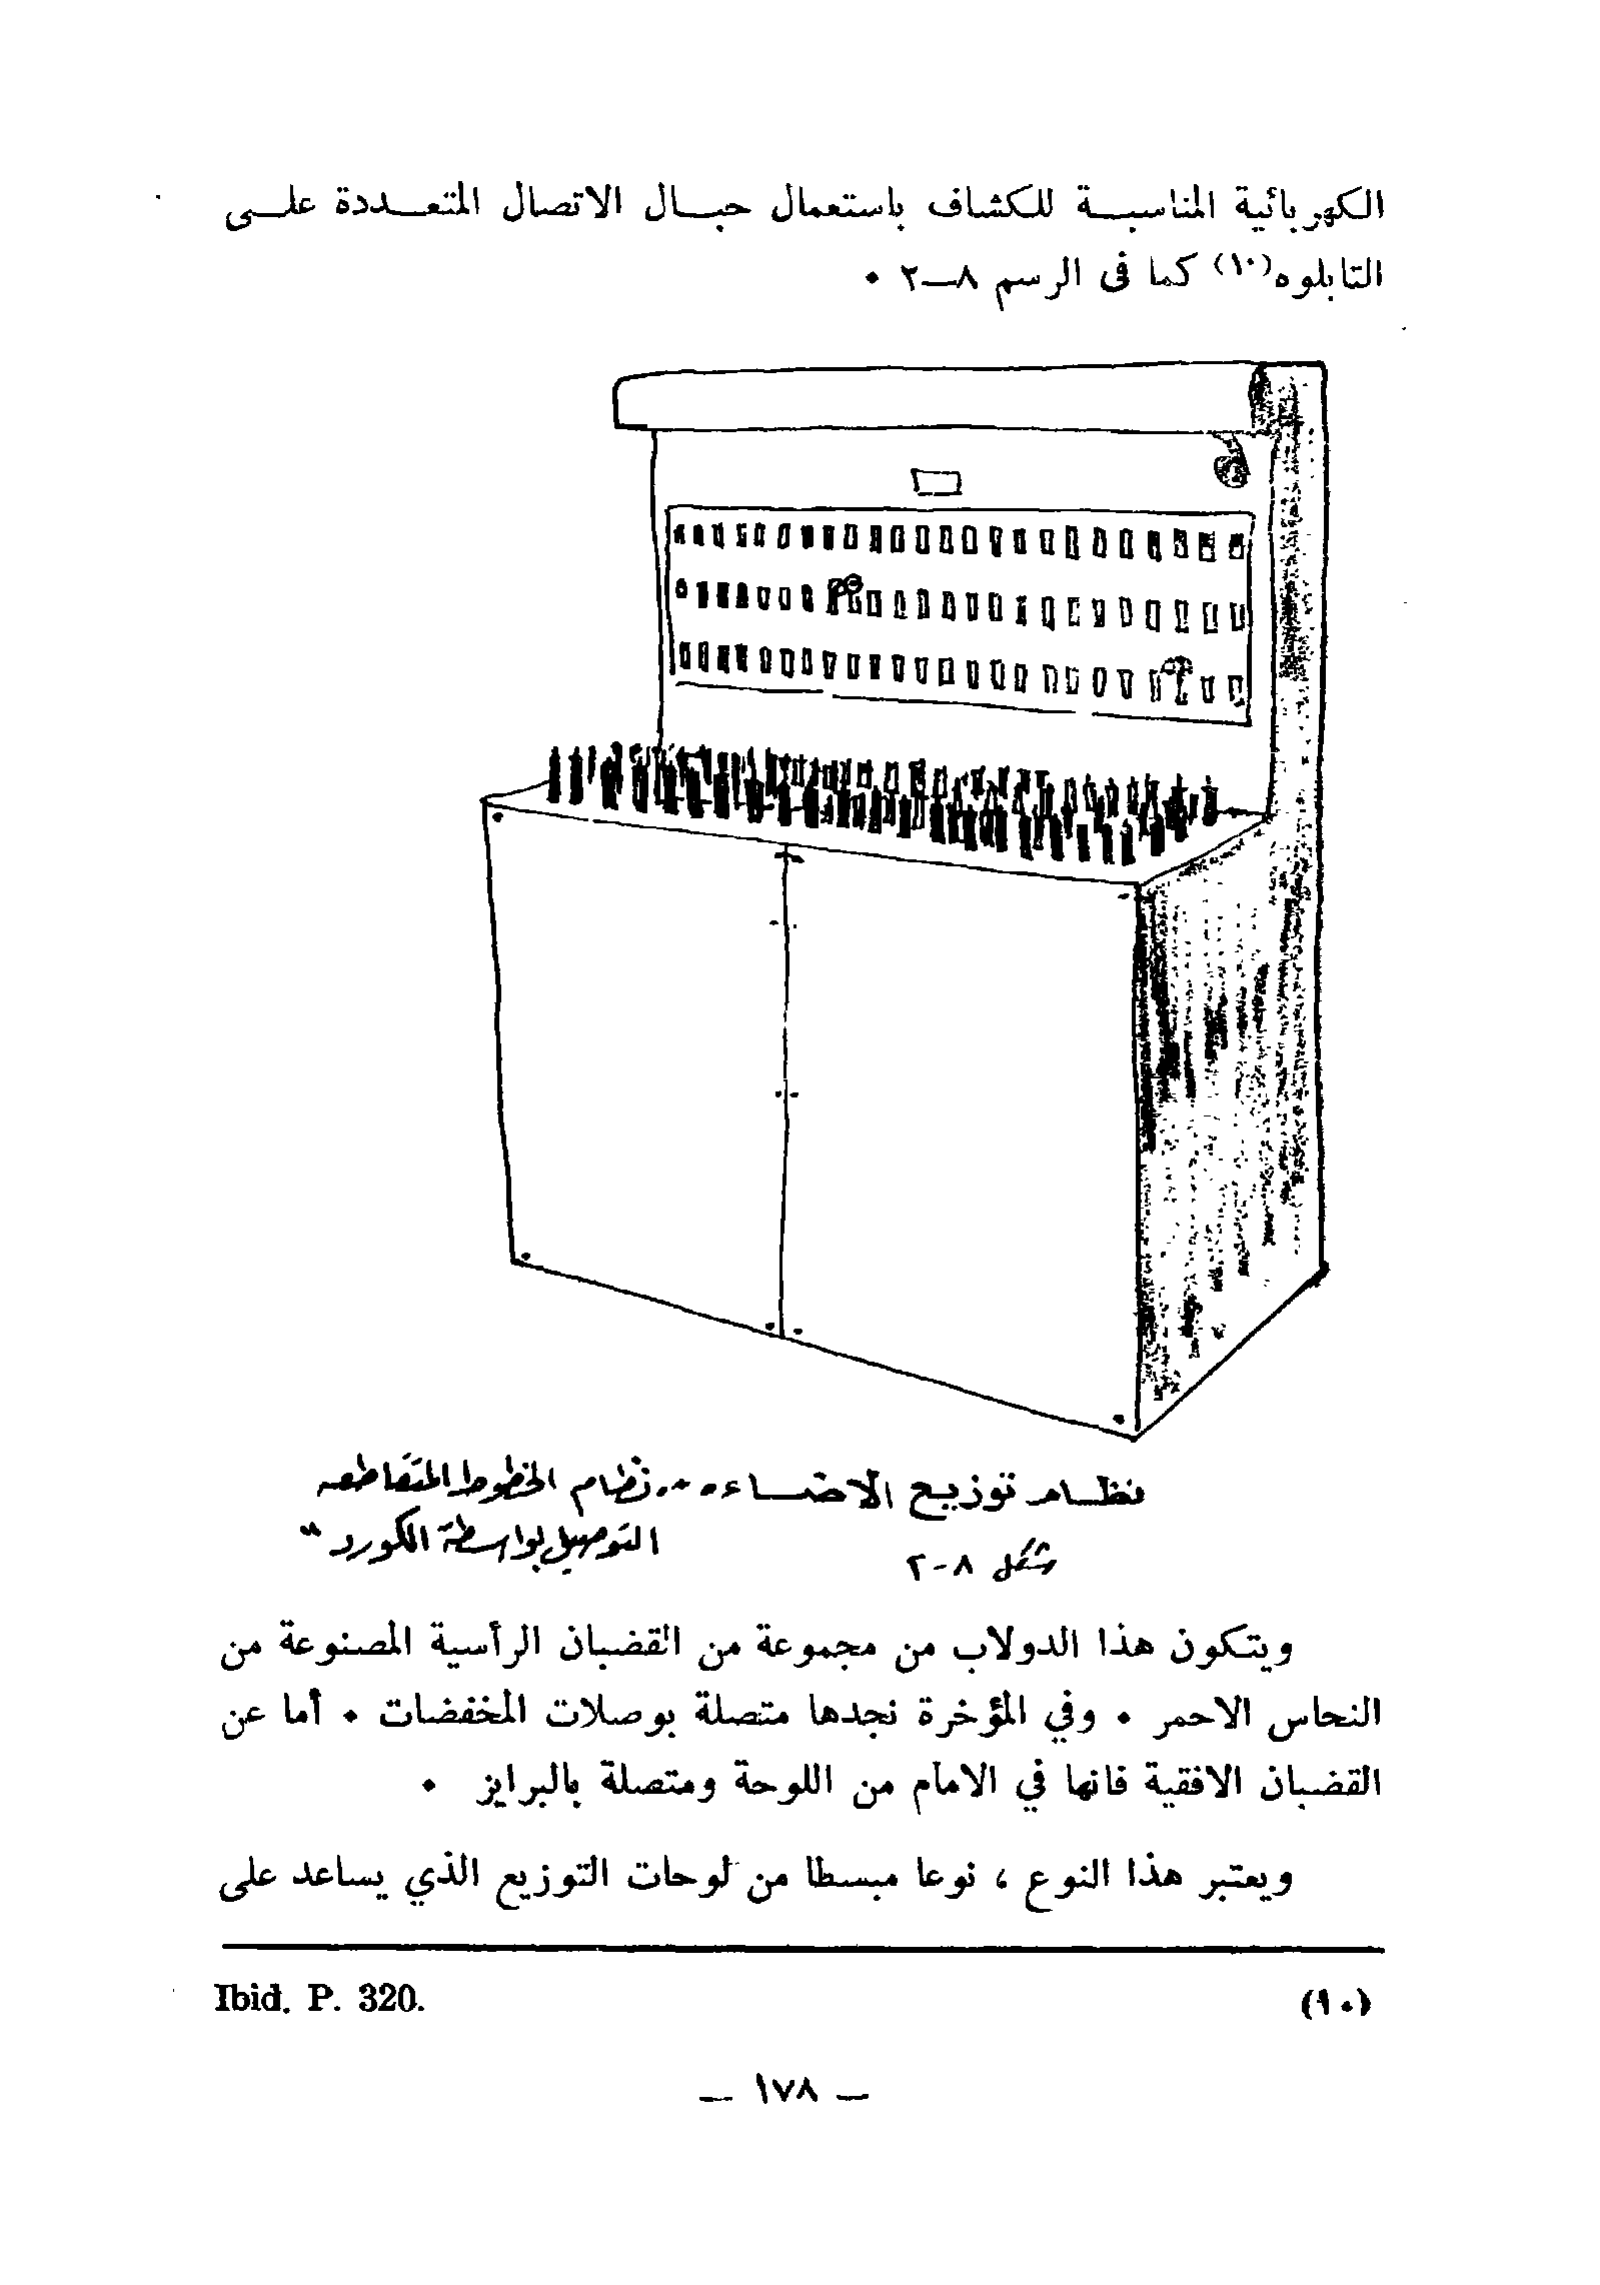 الكهربائية المناسبة للكشاف باستعمال حبال الاتصال المتعددة على
التابلوه(١٠) كما فى الرسم ٨ــ٢ ٠
نظام توزيع الاضاءة ٠٠٠ نظام الخطوط المتقاطعه
التوصيل بواسطة الكورد "
شكل ٨-٢
ويتكون هذا الدولاب من مجموعة من القضبان الرأسية المصنوعة من
النحاس الاحمر ٠ وفي المؤخرة نجدها متصلة بوصلات المخفضات ٠ أما عن
القضبان الافقية فانها في الامام من اللوحة ومتصلة بالبرايز ٠
ويعتبر هذا النوع ، نوعا مبسطا من لوحات التوزيع الذي يساعد على
(١٠) Ibid. P. 320.
— ١٧٨ —